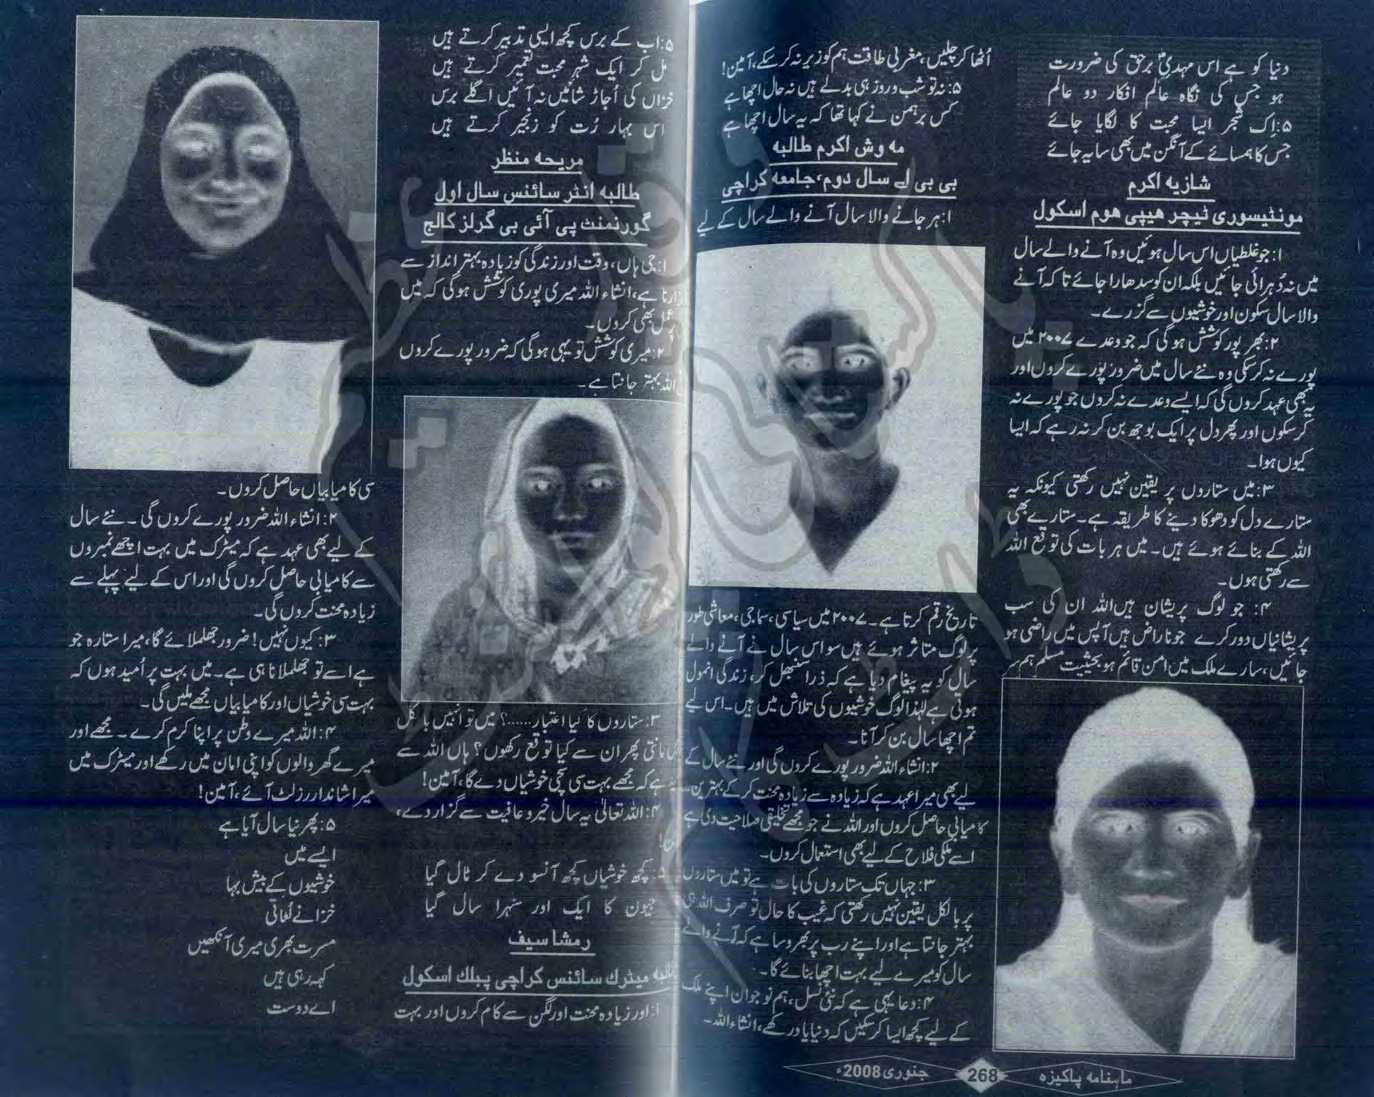 دنیا کو ہے اس مہدیِ برحق کی ضرورت
ہو جس کی نگاہ عالمِ افکار دو عالم
۵:اِک شجر ایسا محبت کا لگایا جائے
جس کا ہمسائے کے آنگن میں بھی سایہ جائے
شازیہ اکرم
مونٹیسوری ٹیچر ھیپی ھوم اسکول
۱: جو غلطیاں اس سال ہوئیں وہ آنے والے سال
میں نہ دُہرائی جائیں بلکہ ان کو سدھارا جائے تاکہ آنے
والا سال سکون اور خوشیوں سے گزرے۔
۲:بھر پور کوشش ہوگی کہ جو وعدے ۲۰۰۷ میں
پورے نہ کر سکی وہ نئے سال میں ضرور پورے کروں اور
یہ بھی عہد کروں گی کہ ایسے وعدے نہ کروں جو پورے نہ
کر سکوں اور پھر دل پر ایک بوجھ بن کر نہ رہے کہ ایسا
کیوں ہوا۔
۳:میں ستاروں پر یقین نہیں رکھتی کیونکہ یہ
ستارے دل کو دھوکا دینے کا طریقہ ہے۔ ستارے بھی
اللہ کے بنائے ہوئے ہیں۔ میں ہر بات کی توقع اللہ
سے رکھتی ہوں۔
۴: جو لوگ پریشان ہیں اللہ ان کی سب
پریشانیاں دور کرے جو ناراض ہیں آپس میں راضی ہو
جائیں، سارے ملک میں امن قائم ہو بحیثیت مسلم ہم سر
اُٹھا کر چلیں، مغربی طاقت ہم کو زیر نہ کر سکے، آمین!
۵:نہ تو شب و روز ہی بدلے ہیں نہ حال اچھا ہے
کس برہمن نے کہا تھا کہ یہ سال اچھا ہے
مہ وش اکرم طالبہ
بی بی اے سال دوم، جامعہ کراچی
۱:ہر جانے والا سال آنے والے سال کے لیے
تاریخ رقم کرتا ہے۔ ۲۰۰۷ میں سیاسی، سماجی، معاشی طور
پر لوگ متاثر ہوئے ہیں سو اس سال نے آنے والے
سال کو یہ پیغام دیا ہے کہ ذرا سنبھل کر، زندگی انمول
ہوتی ہے لہٰذا لوگ خوشیوں کی تلاش میں ہیں۔ اس لیے
تم اچھا سال بن کر آنا۔
۲:انشاء اللہ ضرور پورے کروں گی اور نئے سال کے
لیے بھی میرا عہد ہے کہ زیادہ سے زیادہ محنت کر کے بہترین
کامیابی حاصل کروں اور اللہ نے جو مجھے تخلیقی صلاحیت دی ہے
اسے ملکی فلاح کے لیے بھی استعمال کروں۔
۳:جہاں تک ستاروں کی بات ہے تو میں ستاروں
پر بالکل یقین نہیں رکھتی کہ غیب کا حال تو صرف اللہ ہی
بہتر جانتا ہے اور اپنے رب پر بھروسا ہے کہ آنے والے
سال کو میرے لیے بہت اچھا بنائے گا۔
۴:دعا یہی ہے کہ نئی نسل، ہم نوجوان اپنے ملک
کے لیے کچھ ایسا کر سکیں کہ دنیا یاد رکھے، انشاء اللہ۔
ماہنامہ پاکیزہ 268 جنوری 2008ء
۵:اب کے برس کچھ ایسی تدبیر کرتے ہیں
مل کر ایک شہرِ محبت تعمیر کرتے ہیں
خزاں کی اُجاڑ شامیں نہ آئیں اگلے برس
اس بہار رُت کو زنجیر کرتے ہیں
مریحہ منظر
طالبہ انٹر سائنس سال اول
گورنمنٹ پی آئی بی گرلز کالج
۱:جی ہاں، وقت اور زندگی کو زیادہ بہتر انداز سے
گزارنا ہے، انشاء اللہ میری پوری کوشش ہوگی کہ میں
عمل بھی کروں۔
۲:میری کوشش تو یہی ہوگی کہ ضرور پورے کروں
اللہ بہتر جانتا ہے۔
۳:ستاروں کا کیا اعتبار......؟ میں تو انہیں بالکل
مانتی پھر ان سے کیا توقع رکھوں؟ ہاں اللہ سے
ہے کہ مجھے بہت سی سچی خوشیاں دے گا، آمین!
۴:اللہ تعالیٰ یہ سال خیر و عافیت سے گزار دے،
۵: کچھ خوشیاں کچھ آنسو دے کر ٹال گیا
جیون کا ایک اور سنہرا سال گیا
رمشا سیف
طالبہ میٹرک سائنس کراچی پبلک اسکول
۱:اور زیادہ محنت اور لگن سے کام کروں اور بہت
سی کامیابیاں حاصل کروں۔
۲:انشاء اللہ ضرور پورے کروں گی۔ نئے سال
کے لیے بھی عہد ہے کہ میٹرک میں بہت اچھے نمبروں
سے کامیابی حاصل کروں گی اور اس کے لیے پہلے سے
زیادہ محنت کروں گی۔
۳: کیوں نہیں! ضرور جھلملائے گا، میرا ستارہ جو
ہے اسے تو جھلملانا ہی ہے۔ میں بہت پر اُمید ہوں کہ
بہت سی خوشیاں اور کامیابیاں مجھے ملیں گی۔
۴:اللہ میرے وطن پر اپنا کرم کرے۔ مجھے اور
میرے گھر والوں کو اپنی امان میں رکھے اور میٹرک میں
میرا شاندار رزلٹ آئے، آمین!
۵:پھر نیا سال آیا ہے
ایسے میں
خوشیوں کے بیش بہا
خزانے لُٹاتی
مسرت بھری میری آنکھیں
کہہ رہی ہیں
اے دوست